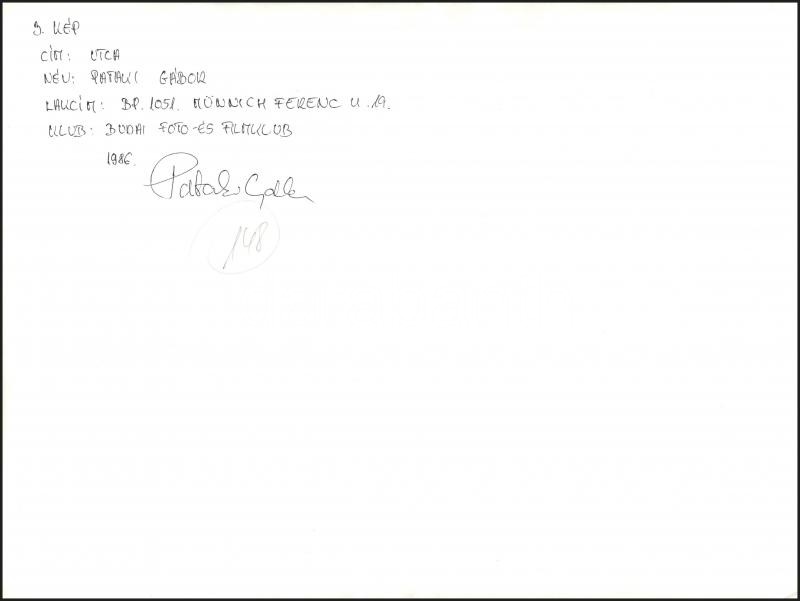 3. KÉP
CÍM: UTCA
NÉV: PATAKI GÁBOR
LAKCÍM: BP. 1051. MÜNNICH FERENC U. 19.
KLUB: BUDAI FOTO-ÉS FILMKLUB
1986.
Pataki Gábor
148